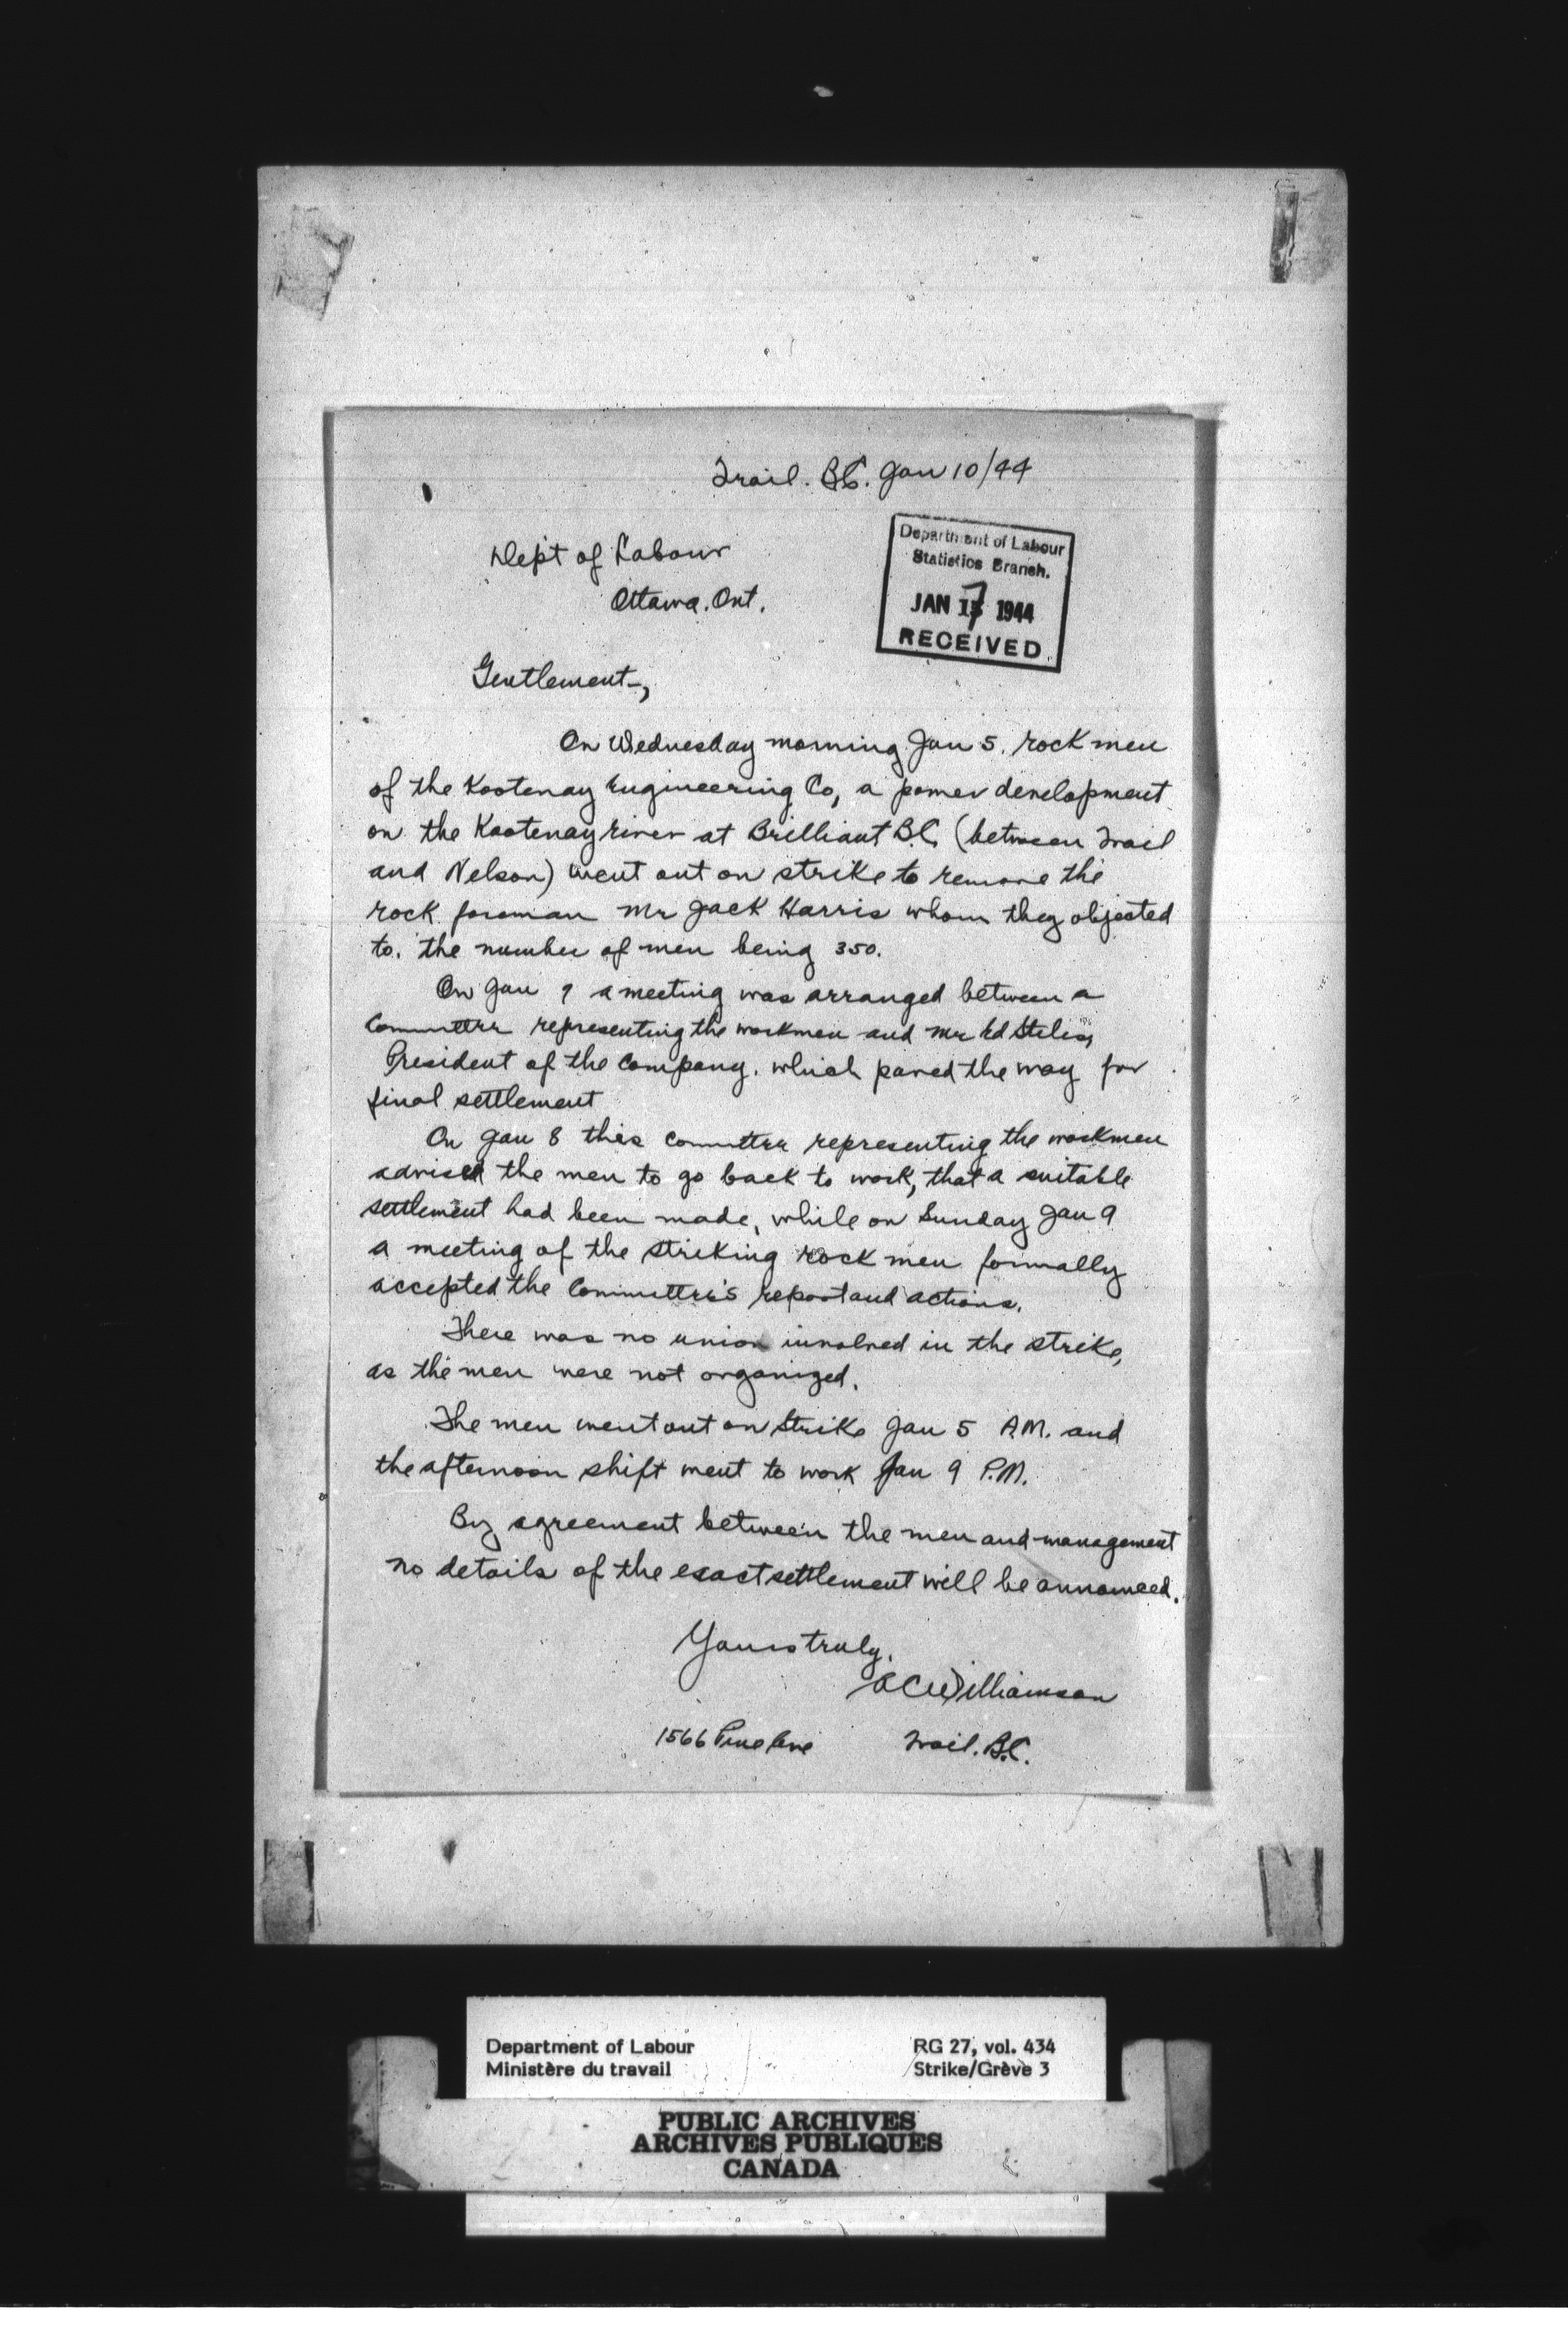 Trail. B.C. Jan 10/44
Dept of Labour
Ottawa. Ont.
Department of Labour
Statistics Branch.
JAN 17 1944
RECEIVED
Gentlement-,
On Wednesday morning Jan 5. rock men
of the Kootenay Engineering Co, a power development
on the Kootenay river at Brilliant B.C. (between Trail
and Nelson) went out on strike to remove the
rock foreman Mr Jack Harris whom they objected
to. the number of men being 350.
On Jan 7 a meeting was arranged between a
Committee representing the workmen and Mr Ed Stiles,
President of the Company. which paved the way for
final settlement
On Jan 8 this Committee representing the workmen
advised the men to go back to work, that a suitable
settlement had been made, while on Sunday Jan 9
a meeting of the striking rock men formally
accepted the Committee's report and actions.
There was no union involved in the strike,
as the men were not organized.
The men went out on Strike Jan 5 A.M. and
the afternoon shift went to work Jan 9 P.M.
By agreement between the men and management
no details of the exact settlement will be announced.
Yours truly.
A C Williamson
1566 Pine Ave Trail. B.C.
Department of Labour RG 27, vol. 434
Ministère du travail Strike/Grève 3
PUBLIC ARCHIVES
ARCHIVES PUBLIQUES
CANADA